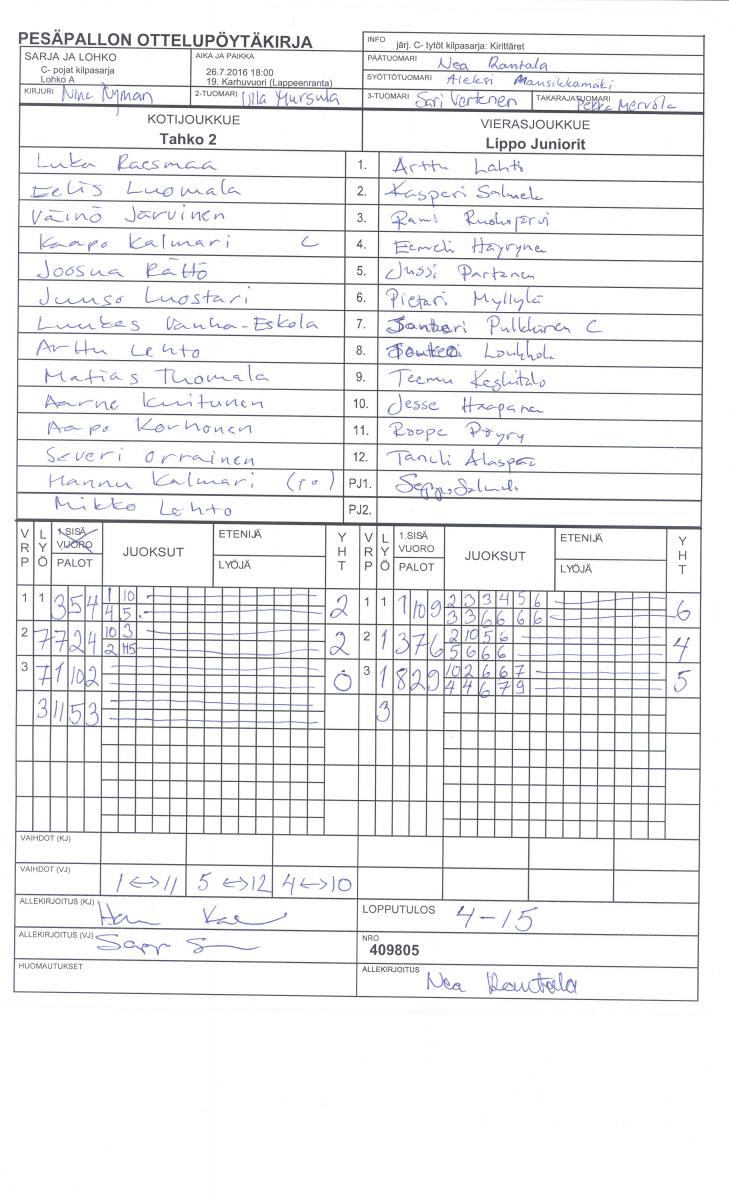 PESÄPALLON OTTELUPÖYTÄKIRJA
INFO järj. C- tytöt kilpasarja: Kirittäret
SARJA JA LOHKO
C- pojat kilpasarja
Lohko A
AIKA JA PAIKKA
26.7.2016 18:00
19. Karhuvuori (Lappeenranta)
PÄÄTUOMARI Nea Rantala
SYÖTTÖTUOMARI Aleksi Mansikkamäki
KIRJURI Nina Nyman 2-TUOMARI Ulla Mursula 3-TUOMARI Sari Vertanen TAKARAJATUOMARI Pekka Mervola
KOTIJOUKKUE VIERASJOUKKUE
Tahko 2 Lippo Juniorit
Luka Raesmaa 1. Arttu Lahti
Eelis Luomala 2. Kasperi
Väinö Järvinen 3. Rami
Kaapo Kalmari C 4. Eemeli Häyrynen
Joosua Rättö 5. Jussi Partanen
Juuso Luostari 6. Pietari Myllylä
Luukas Vanha-Eskola 7. Santeri Pulkkinen C
Arttu Lehto 8.
Matias Thomala 9. Teemu Keskitalo
Aarne Kuitunen 10. Jesse Haapanen
Aapo Korhonen 11. Roope Pöyry
Severi Orrainen 12. Taneli
Hannu Kalmari PJ1. Seppo
Mikko Lehto PJ2.
VRP LYÖ 1.SISÄ VUORO PALOT JUOKSUT ETENIJÄ LYÖJÄ YHT VRP LYÖ 1.SISÄ VUORO PALOT JUOKSUT ETENIJÄ LYÖJÄ YHT
1 1 3 5 4 1 10 2 1 1 1 10 9 2 3 3 4 5 6 6
4 5 3 3 6 6 6 6
2 7 7 2 4 10 3 2 2 1 3 7 6 2 10 5 6 4
2 5 6 6 6
3 7 1 10 2 0 3 1 8 2 9 10 2 6 6 7 5
4 4 6 7 9
3 11 5 3 3
VAIHDOT (KJ)
VAIHDOT (VJ) 1 ↔ 11 5 ↔ 12 4 ↔ 10
ALLEKIRJOITUS (KJ) LOPPUTULOS 4-15
ALLEKIRJOITUS (VJ) NRO
409805
HUOMAUTUKSET ALLEKIRJOITUS Nea Rantala